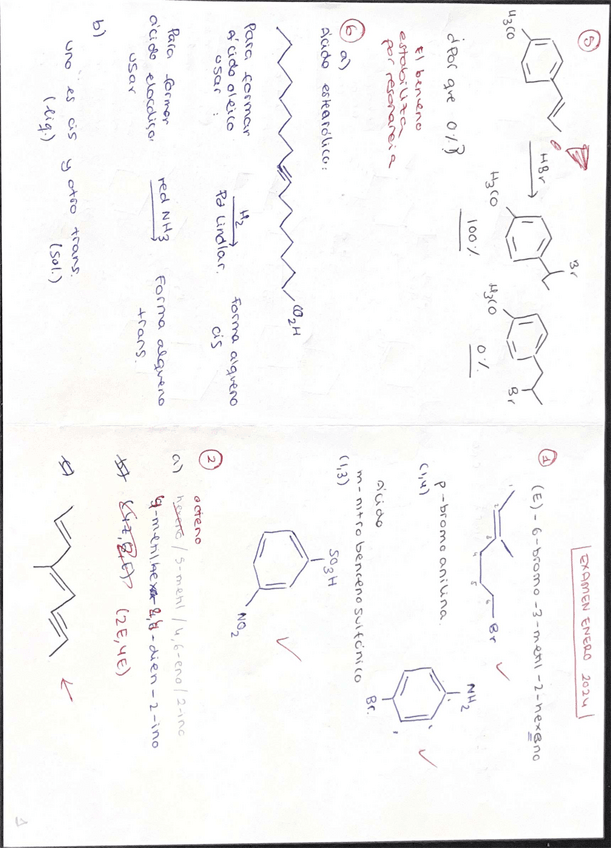 5
H₃CO
HBr
H₃CO
Br
100%
H₃CO
Br
0%
¿Por que 0%?
El benceno
estabiliza
por resonancia
6 a)
Ácido estearólico:
CO₂H
Para formar
ácido oleico
usar:
H₂
Pd Lindlar.
forma alqueno
cis
Para formar
ácido elaídico
usar
red NH3
Forma alqueno
trans.
b)
uno es cis y otro trans.
(líq.) (sol.)
EXAMEN ENERO 2024
1 (E)-6-bromo-3-metil-2-hexeno
Br
p-bromo anilina.
(1,4)
NH₂
Br.
ácido
m-nitro benceno sulfónico
(1,3)
SO₃H
NO₂
2
octeno
a) hexeno / 5-metil / 4,6-eno / 2-ino
dien-2-ino
b) (2E,4E)